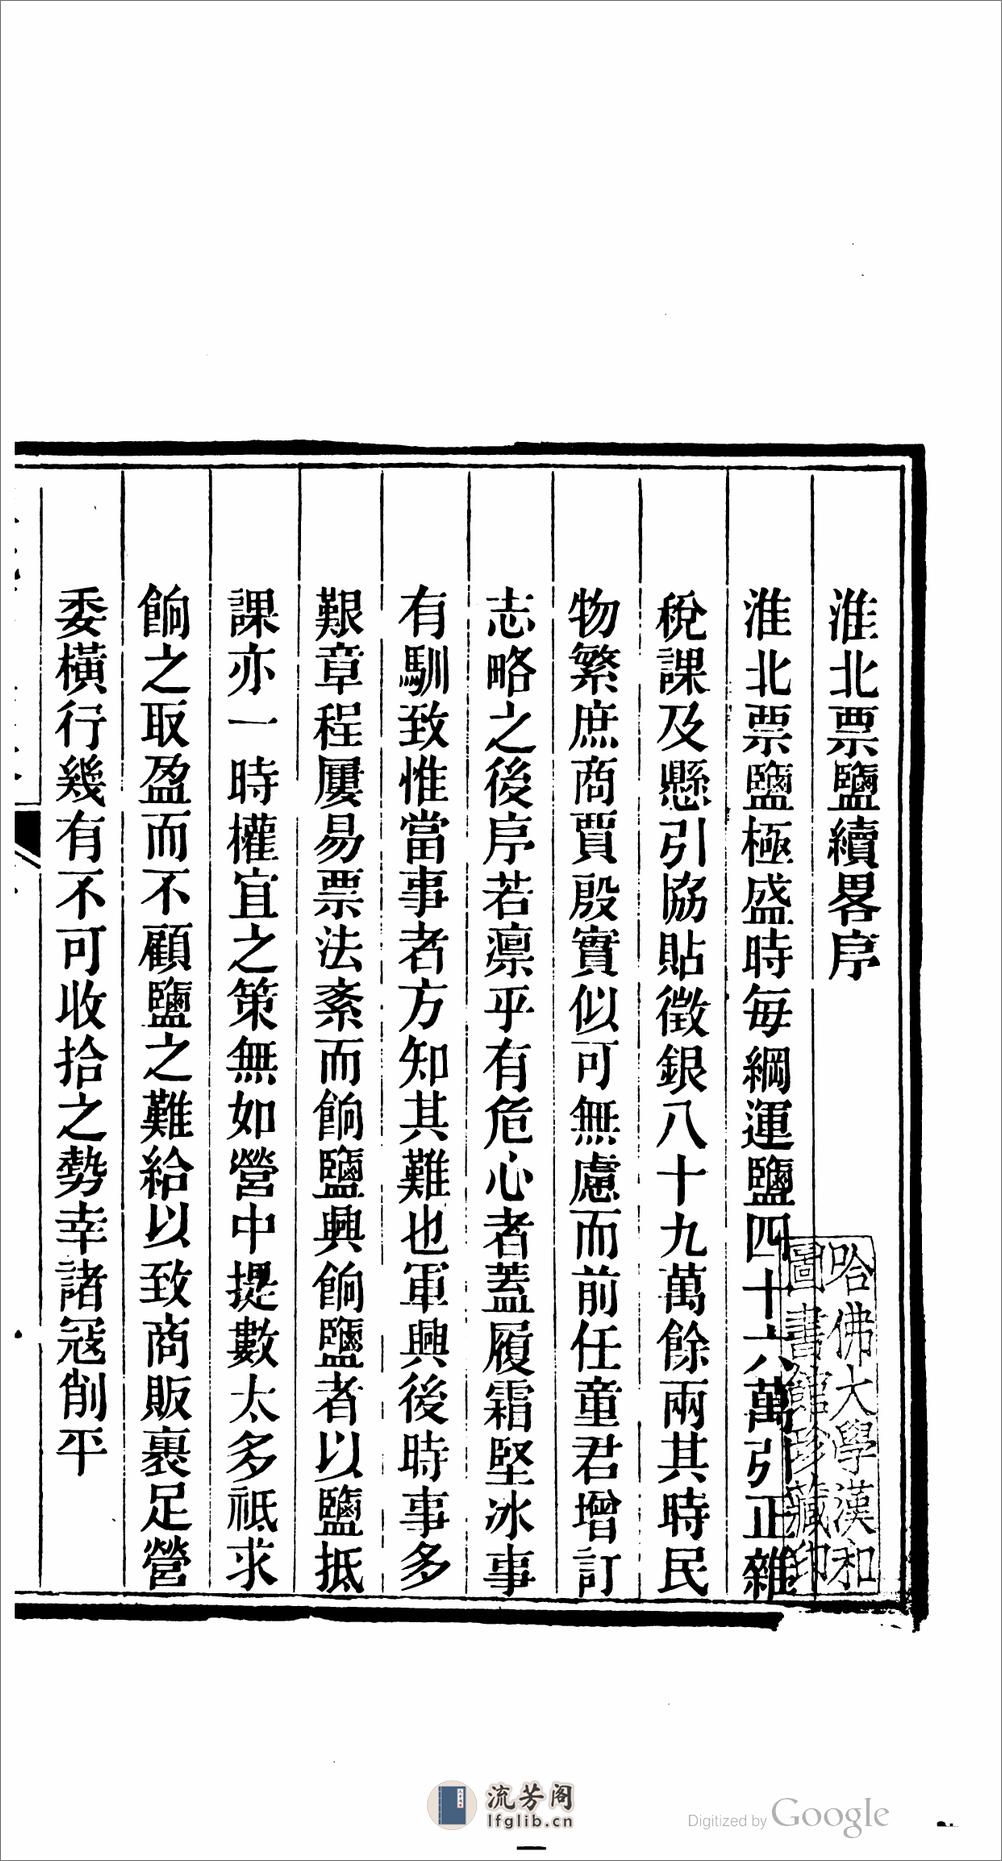 淮北票鹽續畧序
淮北票鹽極盛時每綱運鹽四十六萬引正雜
稅課及懸引協貼徵銀八十九萬餘兩其時民
物繁庶商賈殷實似可無慮而前任童君增訂
志略之後序若凛乎有危心者蓋履霜堅冰事
有馴致惟當事者方知其難也軍興後時事多
艱章程屢易票法紊而餉鹽興餉鹽者以鹽抵
課亦一時權宜之策無如營中提數太多祗求
餉之取盈而不顧鹽之難給以致商販裹足營
委橫行幾有不可收拾之勢幸諸冦削平
哈佛大學漢和
圖書館珍藏印
流芳阁
lfglib.cn
Digitized by Google